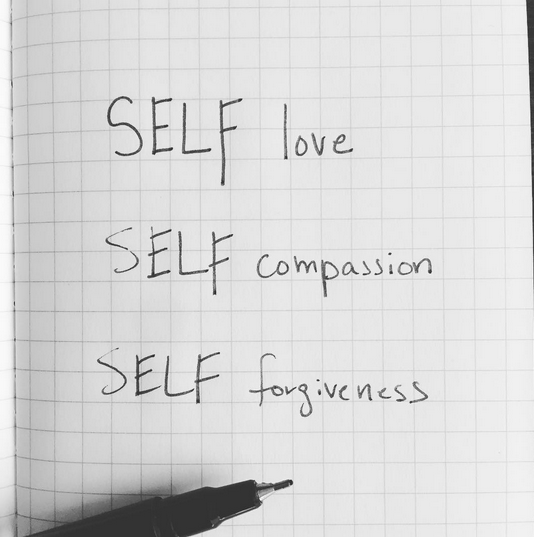 SELF love
SELF compassion
SELF forgiveness